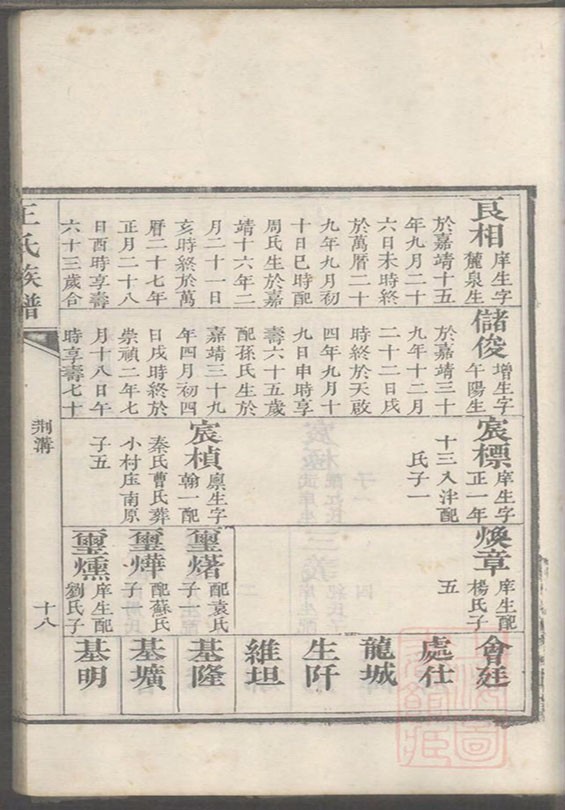 良相
庠生字
麓泉生
於嘉靖十五
年九月二十
六日未時終
於萬曆二十
九年九月初
十日巳時配
周氏生於嘉
靖十六年二
月二十一日
亥時終於萬
曆二十七年
正月二十八
日酉時享壽
六十三歲合
儲俊
增生字
午陽生
於嘉靖三十
九年十二月
二十二日戌
時終於天啟
四年九月十
九日申時享
壽六十五歲
配孫氏生於
嘉靖三十九
年四月初四
日戌時終於
崇禎二年七
月十八日午
時享壽七十
宸標
庠生字
正一年
十三入泮配
氏子一
宸楨
廩生字
翰一配
秦氏曹氏葬
小村庄南原
子五
煥章
庠生配
楊氏子
五
璽𤏸
配袁氏
子一
璽燁
配蘇氏
子十
璽燻
庠生配
劉氏子
會廷
處仕
龍城
生阡
維坦
基隆
基壙
基明
王氏族譜
荆溝
十八